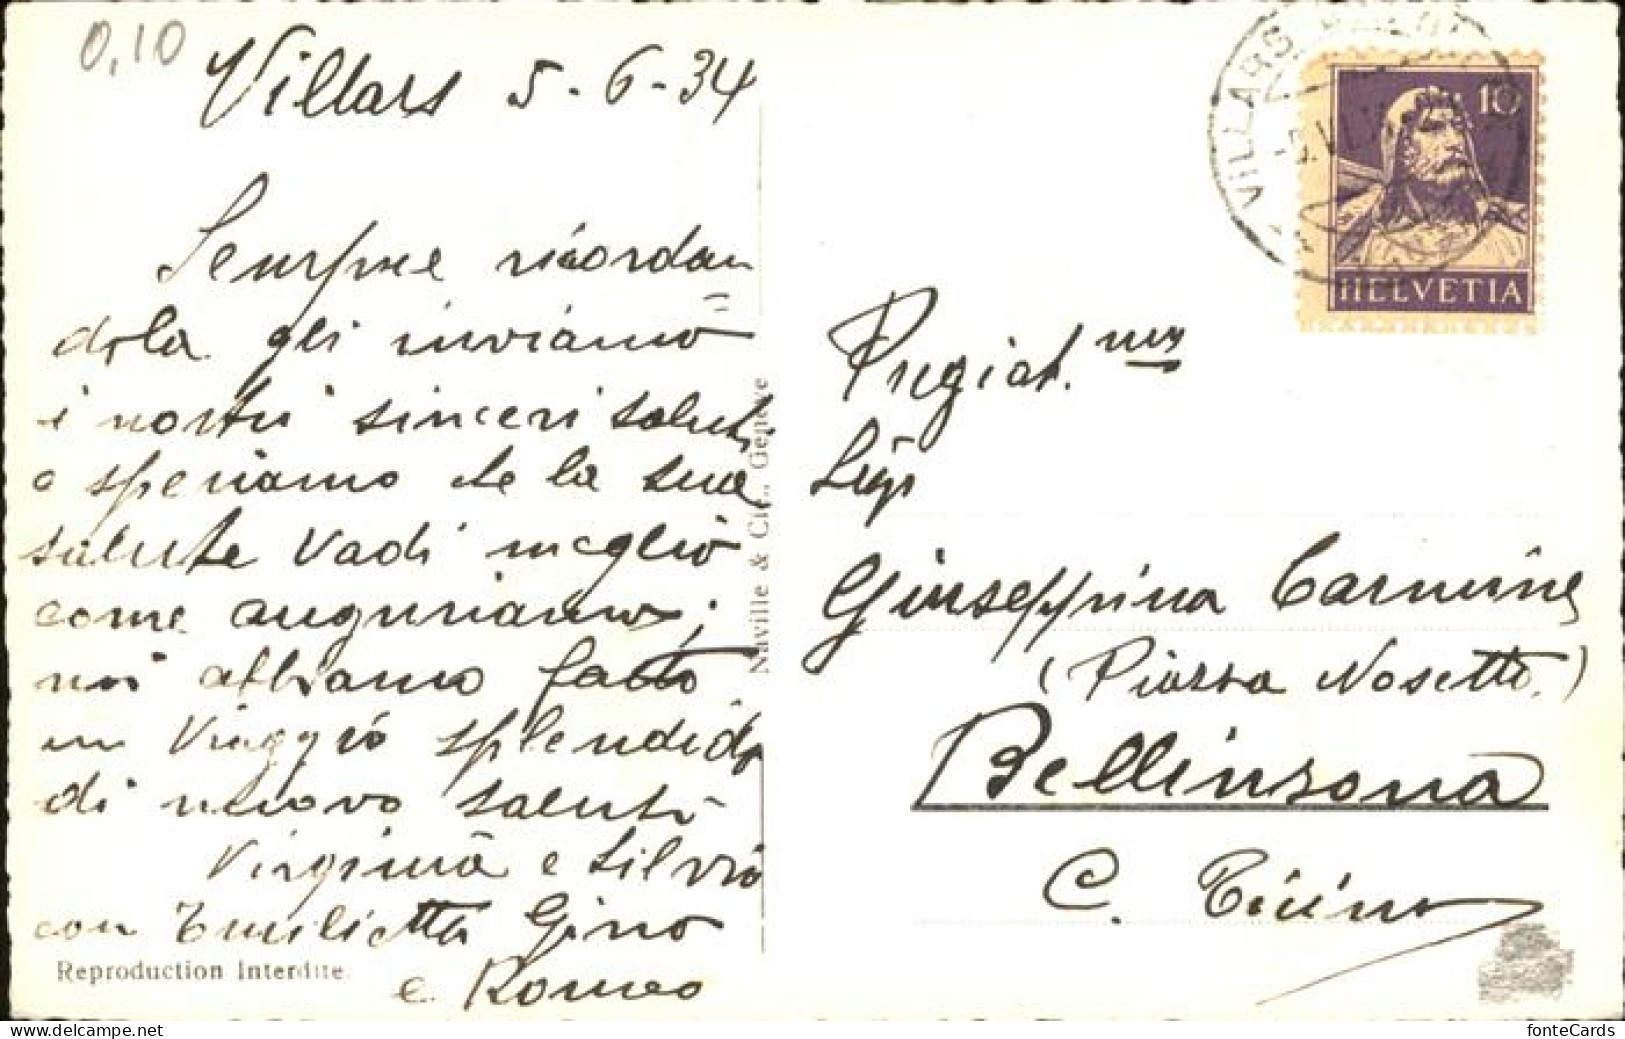 0,10
Villars 5-6-34
Sempre ricordan
dola gli inviamo
i nostri sinceri saluti
e speriamo che la sua
salute vadi meglio
come auguriamo;
noi abbiamo fatto
un viaggio splendido
di nuovo saluti
Virginia e Silvio
con Emilietta Gino
e Romeo
Reproduction Interdite
Naville & Cie., Genève
VILLARS
10
HELVETIA
Pregiat.
Giuseppina Carmine
(Piazza Nosetto.)
Bellinzona
C. Ticino
fonteCards
https://www.delcampe.net